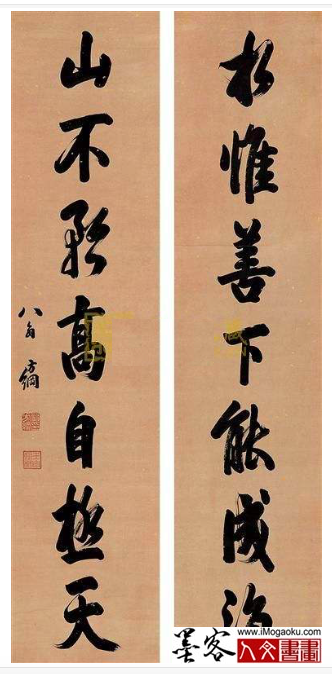 水惟善下能成海
山不矜高自極天
八旬方綱
www.iMogaoku.com
墨客
人文書畫